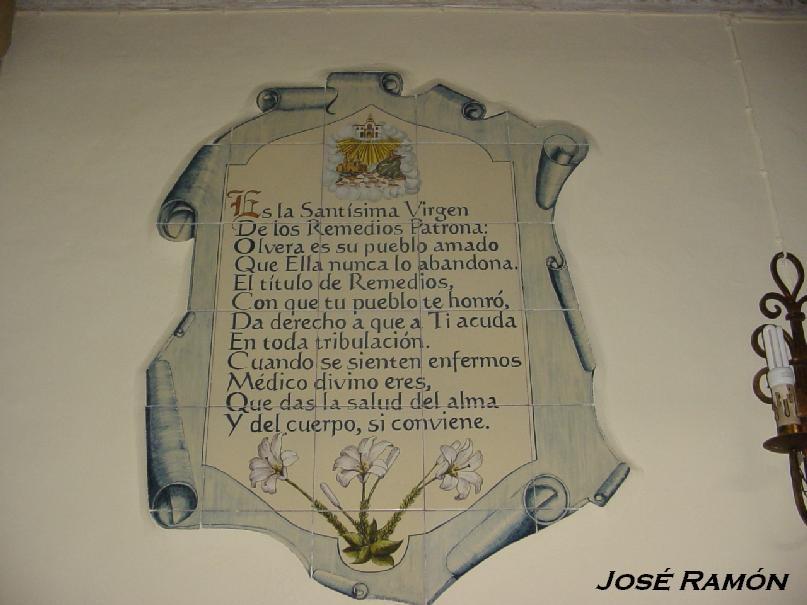 Es la Santísima Virgen
De los Remedios Patrona:
Olvera es su pueblo amado
Que Ella nunca lo abandona.
El título de Remedios,
Con que tu pueblo te honró,
Da derecho a que a Ti acuda
En toda tribulación.
Cuando se sienten enfermos
Médico divino eres,
Que das la salud del alma
Y del cuerpo, si conviene.
JOSÉ RAMÓN